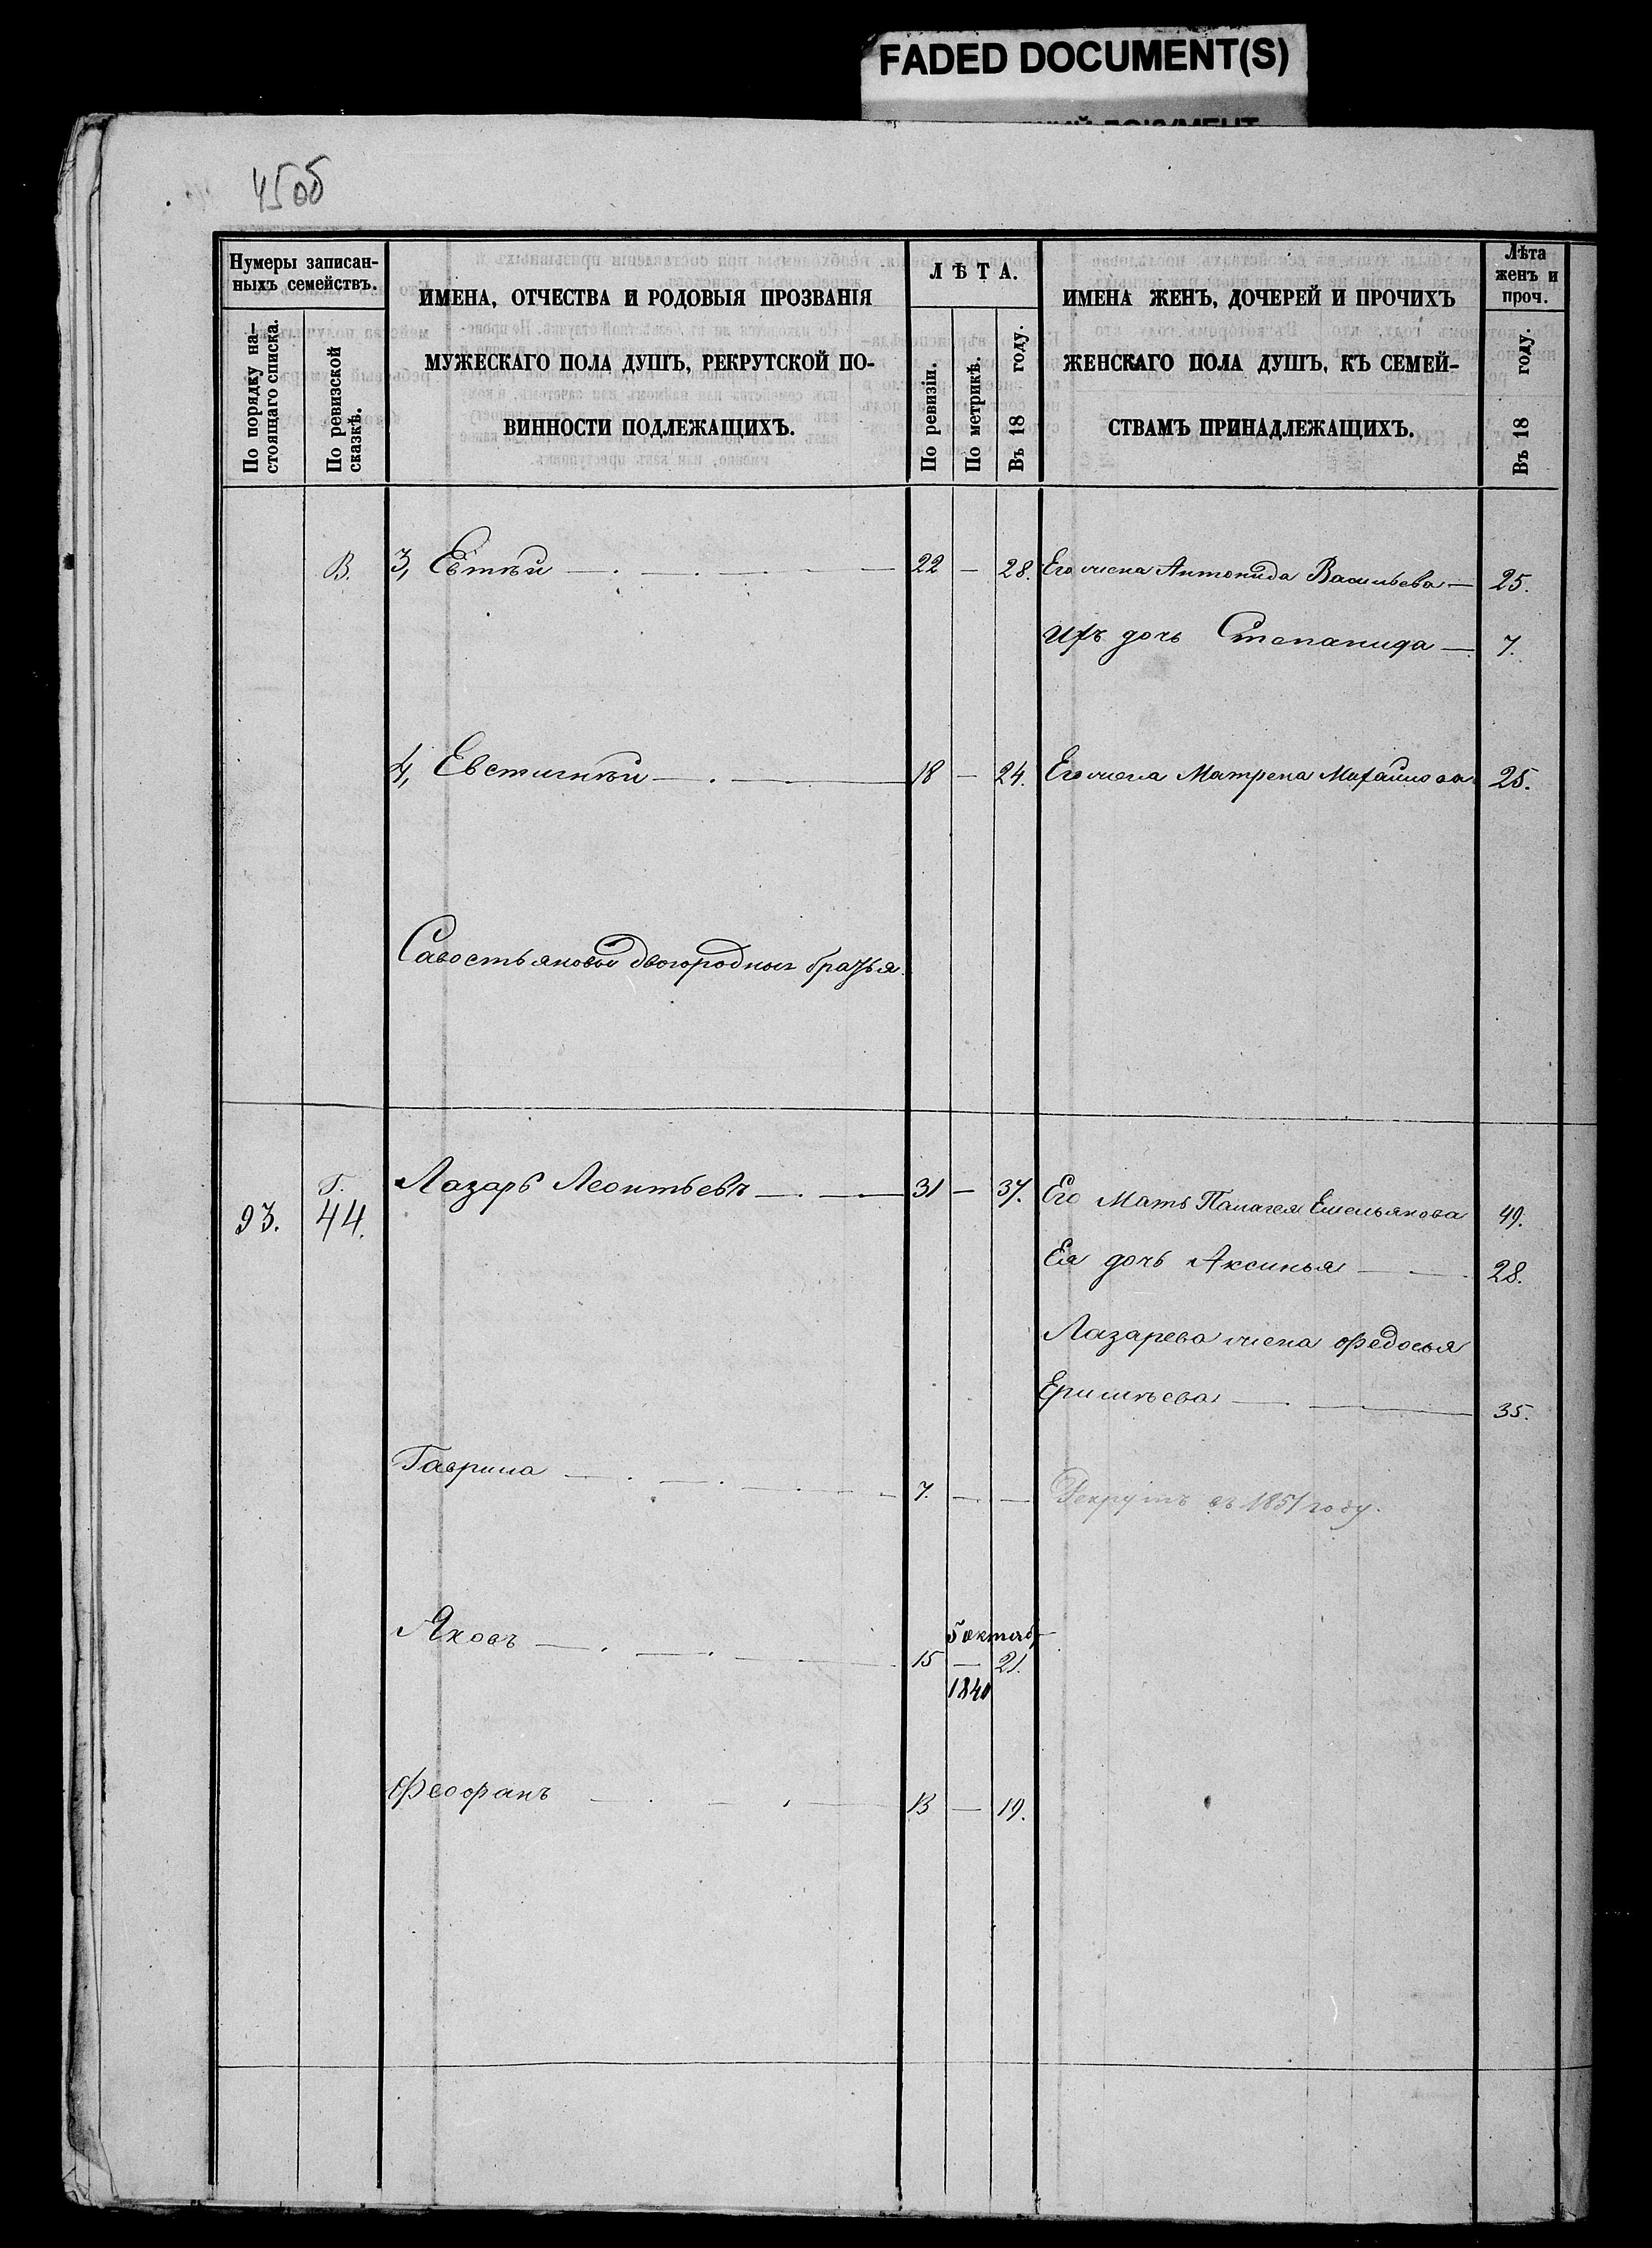 FADED DOCUMENT(S)
45об
Нумеры записан-
ныхъ семействъ.
По порядку на-
стоящаго списка.
По ревизской
сказкѣ.
ИМЕНА, ОТЧЕСТВА И РОДОВЫЯ ПРОЗВАНІЯ
МУЖЕСКАГО ПОЛА ДУШЪ, РЕКРУТСКОЙ ПО-
ВИННОСТИ ПОДЛЕЖАЩИХЪ.
ЛѢТА.
По ревизіи.
По метрикѣ.
Въ 18 году.
ИМЕНА ЖЕНЪ, ДОЧЕРЕЙ И ПРОЧИХЪ
ЖЕНСКАГО ПОЛА ДУШЪ, КЪ СЕМЕЙ-
СТВАМЪ ПРИНАДЛЕЖАЩИХЪ.
Лѣта
женъ и
проч.
Въ 18 году.
В. 3, 22 — 28. Его жена Антонида Васильева — 25.
Ихъ дочь Степанида — 7.
4, Евстигнѣй — 18 — 24. Его жена Матрена Михайлова 25.
двоюродные братья
93. Г. 44. Лазарь Леонтьевъ — 31 — 37. Его Мать Палагея Емельянова 49.
Ея дочь Аксинья — 28.
Лазарева жена Федосья
35.
Гаврила — 7. — — Рекрутъ въ 1851 году.
Яковъ — 15 5 октяб — 21.
1840
Феофанъ — 13 — 19.